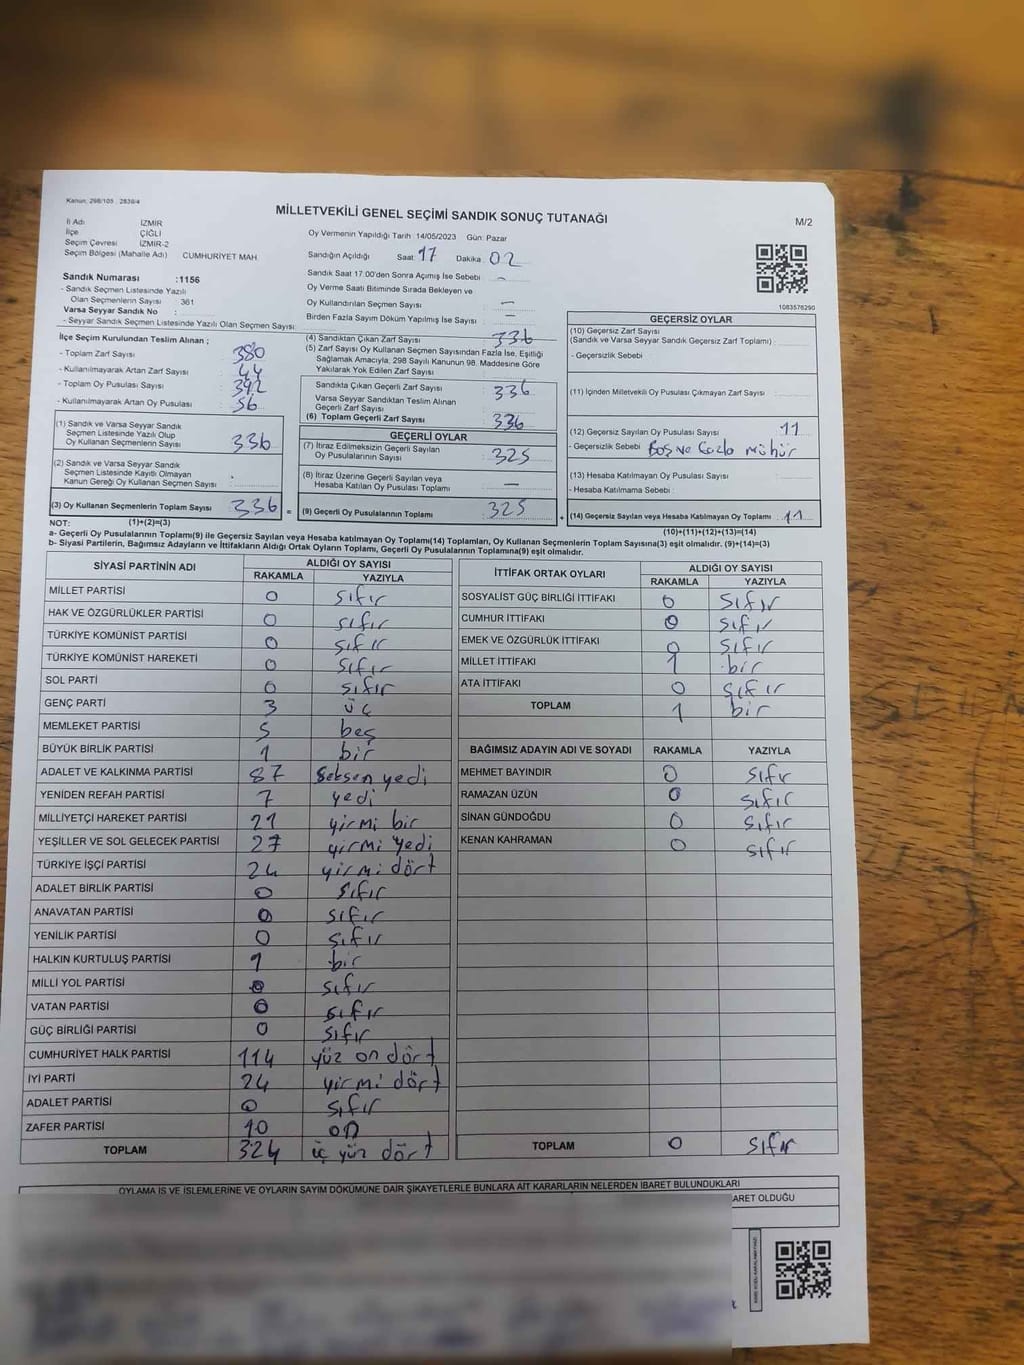 Kanun; 298/105 , 2839/4
MİLLETVEKİLİ GENEL SEÇİMİ SANDIK SONUÇ TUTANAĞI
M/2
İl Adı İZMİR
İlçe ÇİĞLİ
Seçim Çevresi İZMİR-2
Seçim Bölgesi (Mahalle Adı) CUMHURİYET MAH.
Oy Vermenin Yapıldığı Tarih :14/05/2023 Gün: Pazar
Sandığın Açıldığı Saat 17 Dakika 02
Sandık Saat 17 00'den Sonra Açımış İse Sebebi -
Oy Verme Saati Bitiminde Sırada Bekleyen ve
Oy Kullandırılan Seçmen Sayısı —
Birden Fazla Sayım Döküm Yapılmış İse Sayısı —
1083576290
Sandık Numarası :1156
- Sandık Seçmen Listesinde Yazılı
Olan Seçmenlerin Sayısı : 361
Varsa Seyyar Sandık No :
- Seyyar Seçmen Listesinde Yazılı Olan Seçmen Sayısı
İlçe Seçim Kurulundan Teslim Alınan ;
- Toplam Zarf Sayısı 380
- Kullanılmayarak Artan Zarf Sayısı 44
- Toplam Oy Pusulası Sayısı 392
- Kullanılmayarak Artan Oy Pusulası 56
(1) Sandık ve Varsa Seyyar Sandık
Seçmen Listesinde Yazılı Olup
Oy Kullanan Seçmenlerin Sayısı 336
(2) Sandık ve Varsa Seyyar Sandık
Seçmen Listesinde Kayıtlı Olmayan
Kanun Gereği Oy Kullanan Seçmen Sayısı :
(3) Oy Kullanan Seçmenlerin Toplam Sayısı 336 =
(4) Sandıktan Çıkan Zarf Sayısı 336
(5) Zarf Sayısı Oy Kullanan Seçmen Sayısından Fazla İse, Eşitliği
Sağlamak Amacıyla; 298 Sayılı Kanunun 98. Maddesine Göre
Yakılarak Yok Edilen Zarf Sayısı
Sandıkta Çıkan Geçerli Zarf Sayısı 336
Varsa Seyyar Sandıktan Teslim Alınan
Geçerli Zarf Sayısı
(6) Toplam Geçerli Zarf Sayısı 336
GEÇERLİ OYLAR
(7) İtiraz Edilmeksizin Geçerli Sayılan
Oy Pusulalarının Sayısı: 325
(8) İtiraz Üzerine Geçerli Sayılan veya
Hesaba Katılan Oy Pusulası Toplamı —
(9) Geçerli Oy Pusulalarının Toplamı 325 +
GEÇERSİZ OYLAR
(10) Geçersiz Zarf Sayısı
(Sandık ve Varsa Seyyar Sandık Geçersiz Zarf Toplamı) :
- Geçersizlik Sebebi
(11) İçinden Milletvekili Oy Pusulası Çıkmayan Zarf Sayısı
(12) Geçersiz Sayılan Oy Pusulası Sayısı 11
- Geçersizlik Sebebi : Boş ve fazla mühür
(13) Hesaba Katılmayan Oy Pusulası Sayısı :
- Hesaba Katılmama Sebebi :
(14) Geçersiz Sayılan veya Hesaba Katılmayan Oy Toplamı : 11
NOT: (1)+(2)=(3) (10)+(11)+(12)+(13)=(14)
a- Geçerli Oy Pusulalarının Toplamı(9) ile Geçersiz Sayılan veya Hesaba katılmayan Oy Toplamı(14) Toplamları, Oy Kullanan Seçmenlerin Toplam Sayısına(3) eşit olmalıdır. (9)+(14)=(3)
b- Siyasi Partilerin, Bağımsız Adayların ve İttifakların Aldığı Ortak Oyların Toplamı, Geçerli Oy Pusulalarının Toplamına(9) eşit olmalıdır.
SİYASİ PARTİNİN ADI ALDIĞI OY SAYISI
RAKAMLA YAZIYLA
MİLLET PARTİSİ 0 sıfır
HAK VE ÖZGÜRLÜKLER PARTİSİ 0 sıfır
TÜRKİYE KOMÜNİST PARTİSİ 0 sıfır
TÜRKİYE KOMÜNİST HAREKETİ 0 sıfır
SOL PARTİ 0 sıfır
GENÇ PARTİ 3 üç
MEMLEKET PARTİSİ 5 beş
BÜYÜK BİRLİK PARTİSİ 1 bir
ADALET VE KALKINMA PARTİSİ 87 seksen yedi
YENİDEN REFAH PARTİSİ 7 yedi
MİLLİYETÇİ HAREKET PARTİSİ 21 yirmi bir
YEŞİLLER VE SOL GELECEK PARTİSİ 27 yirmi yedi
TÜRKİYE İŞÇİ PARTİSİ 24 yirmi dört
ADALET BİRLİK PARTİSİ 0 sıfır
ANAVATAN PARTİSİ 0 sıfır
YENİLİK PARTİSİ 0 sıfır
HALKIN KURTULUŞ PARTİSİ 1 bir
MİLLİ YOL PARTİSİ 0 sıfır
VATAN PARTİSİ 0 sıfır
GÜÇ BİRLİĞİ PARTİSİ 0 sıfır
CUMHURİYET HALK PARTİSİ 114 yüz on dört
İYİ PARTİ 24 yirmi dört
ADALET PARTİSİ 0 sıfır
ZAFER PARTİSİ 10 on
TOPLAM 324 üç yüz dört
İTTİFAK ORTAK OYLARI ALDIĞI OY SAYISI
RAKAMLA YAZIYLA
SOSYALİST GÜÇ BİRLİĞİ İTTİFAKI 0 sıfır
CUMHUR İTTİFAKI 0 sıfır
EMEK VE ÖZGÜRLÜK İTTİFAKI 0 sıfır
MİLLET İTTİFAKI 1 bir
ATA İTTİFAKI 0 sıfır
TOPLAM 1 bir
BAĞIMSIZ ADAYIN ADI VE SOYADI RAKAMLA YAZIYLA
MEHMET BAYINDIR 0 sıfır
RAMAZAN ÜZÜN 0 sıfır
SİNAN GÜNDOĞDU 0 sıfır
KENAN KAHRAMAN 0 sıfır
TOPLAM 0 sıfır
OYLAMA İŞ VE İŞLEMLERİNE VE OYLARIN SAYIM DÖKÜMÜNE DAİR ŞİKAYETLERLE BUNLARA AİT KARARLARIN NELERDEN İBARET BULUNDUKLARI
BARET OLDUĞU